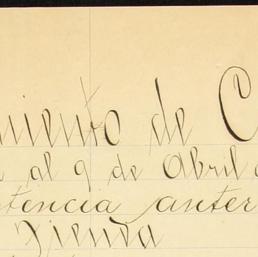 miento de C
al 9 de Abril
tencia anter
Tienda